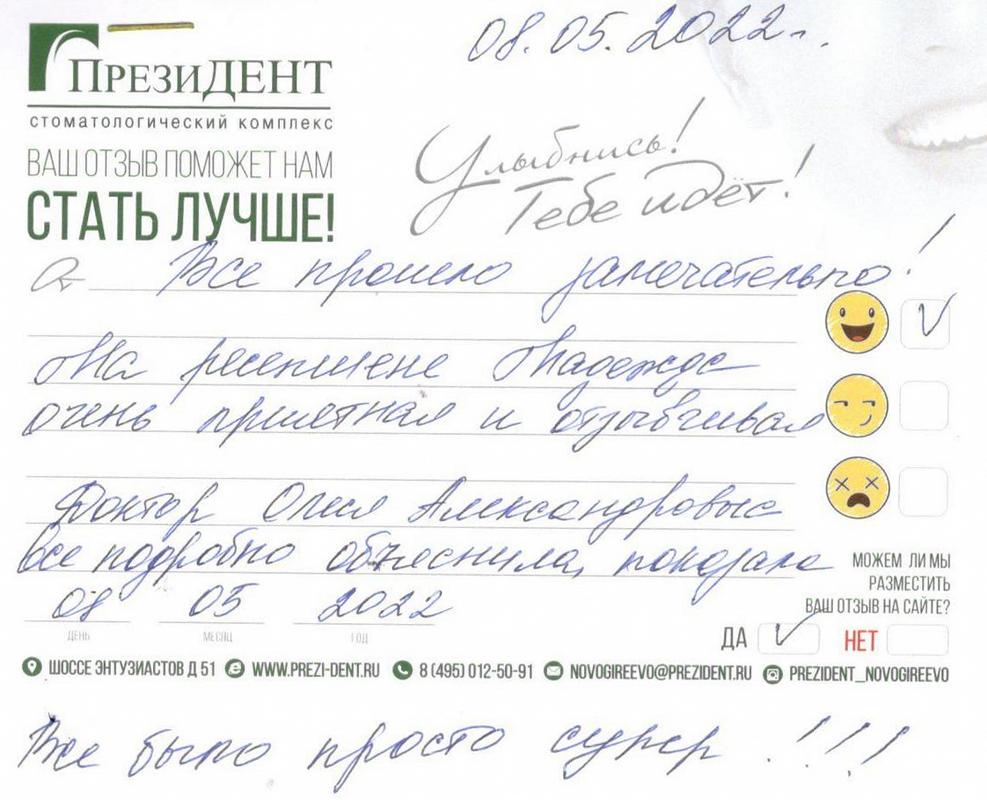 08.05.2022г.
ПрезиДЕНТ
стоматологический комплекс
ВАШ ОТЗЫВ ПОМОЖЕТ НАМ
СТАТЬ ЛУЧШЕ!
Улыбнись!
Тебе идёт!
Все прошло замечательно!
На ресепшене Надежда
очень приятная и отзывчивая
Доктор Олеся Александровна
все подробно объяснила, показала
МОЖЕМ ЛИ МЫ
РАЗМЕСТИТЬ
ВАШ ОТЗЫВ НА САЙТЕ?
08 05 2022
ДЕНЬ МЕСЯЦ ГОД
ДА НЕТ
ШОССЕ ЭНТУЗИАСТОВ Д 51 WWW.PREZI-DENT.RU 8 (495) 012-50-91 NOVOGIREEVO@PREZIDENT.RU PREZIDENT_NOVOGIREEVO
Все было просто супер !!!